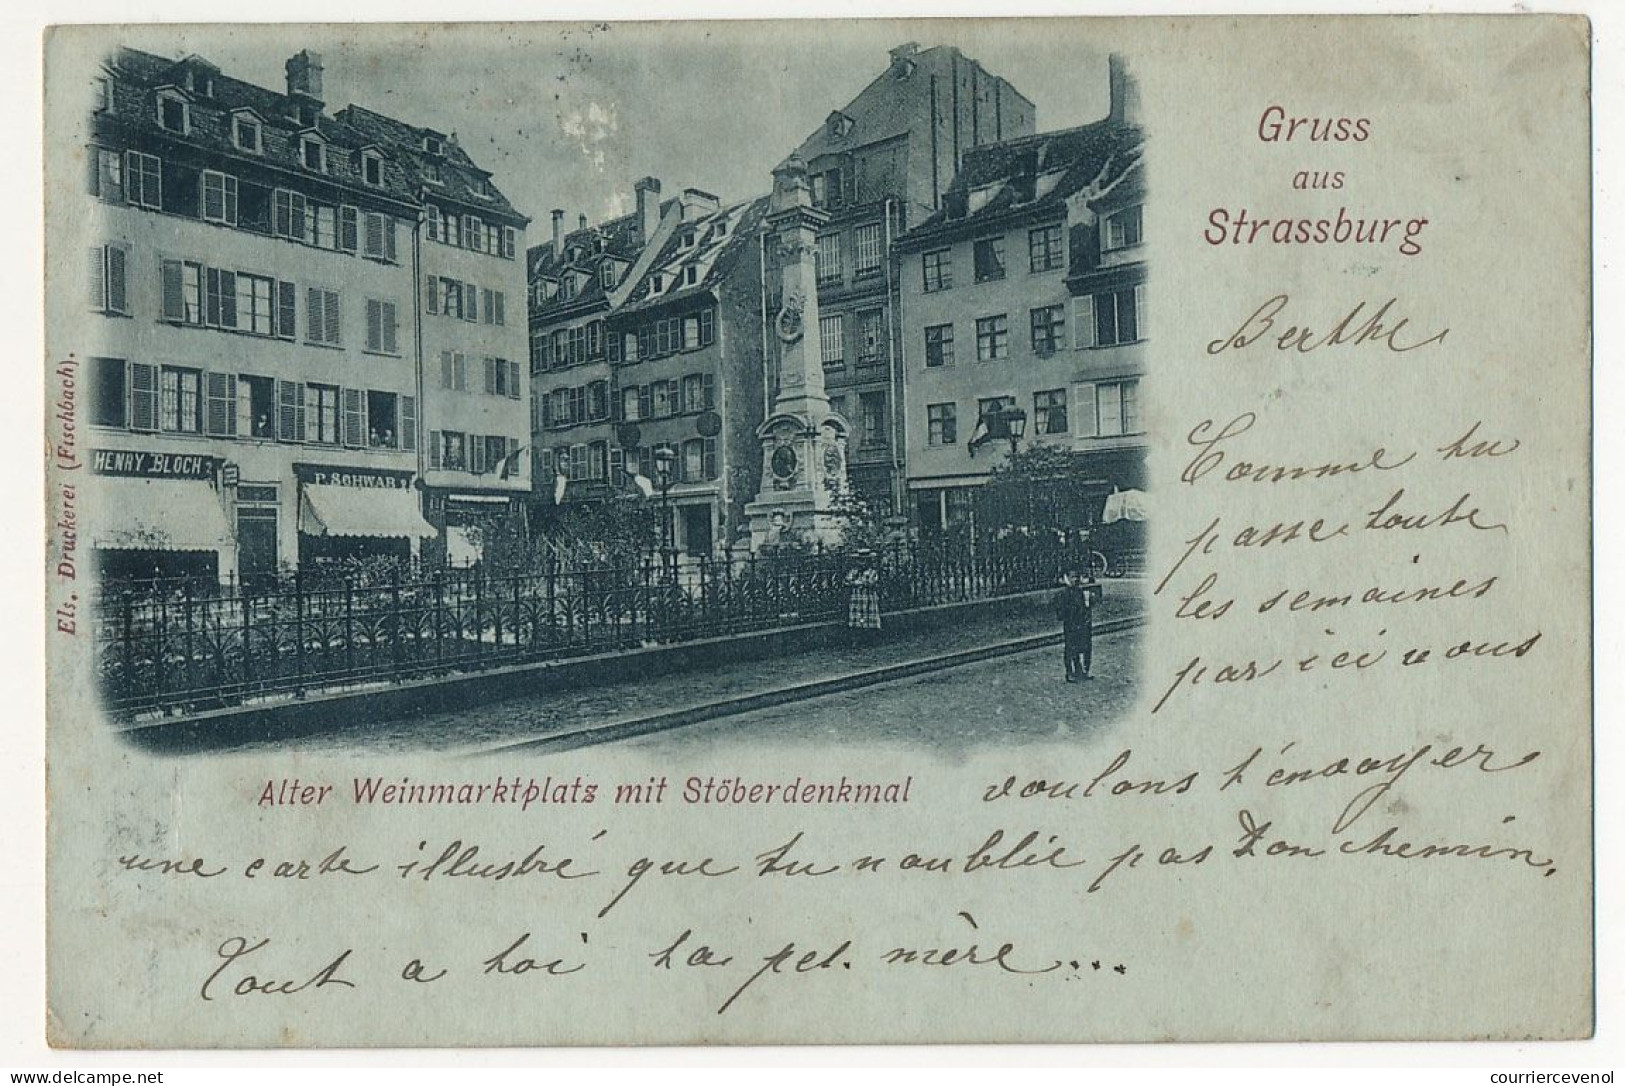 Gruss
aus
Strassburg
HENRY BLOCH
P. SCHWAB
Els. Druckerei (Fischbach).
Alter Weinmarktplatz mit Stöberdenkmal
Berthe
Comme tu
passe toute
les semaines
par ici vous
voulons t'énvoyer
une carte illustré que tu noublie pas ton chemin.
Tout a toi ta pet. mère...
www.delcampe.net
courriercevenol